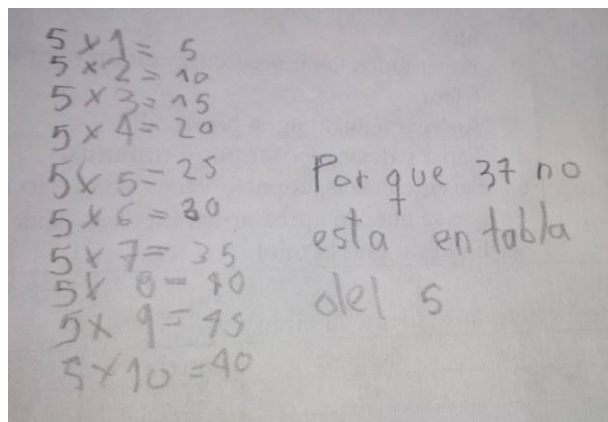 5 x 1 = 5
5 x 2 = 10
5 x 3 = 15
5 x 4 = 20
5 x 5 = 25
5 x 6 = 30
5 x 7 = 35
5 x 8 = 40
5 x 9 = 45
5 x 10 = 40
Porque 37 no
esta en tabla
del 5